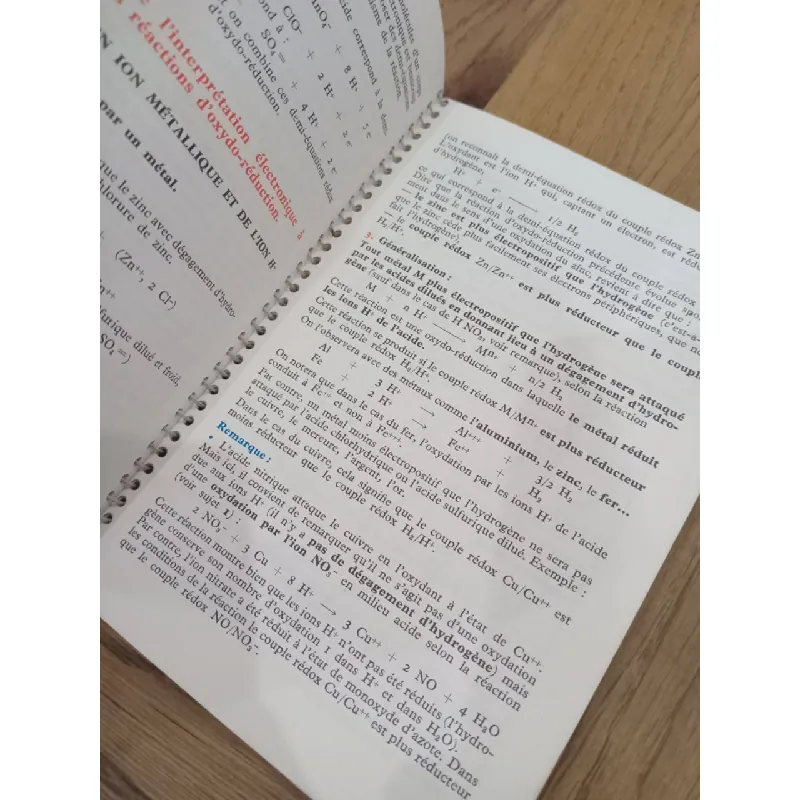 ClO⁻
SO₄=
on combine ces demi-équations rédox
d'oxydo-réduction.
+ 2 H⁺
+ 8 H⁺
+ 4 H⁺
+ 2 e⁻
+ 5 e⁻
l'interprétation électronique
réactions d'oxydo-réduction.
ION MÉTALLIQUE ET DE L'ION H⁺
par un métal.
que le zinc avec dégagement d'hydro-
chlorure de zinc.
(Zn⁺⁺, 2 Cl⁻)
furique dilué et froid,
SO₄=)
(on reconnaît la demi-équation rédox du couple rédox Zn
L'oxydant est l'ion H⁺ qui, captant un électron, est rédu
d'hydrogène,
H⁺ + e⁻ ⟶ 1/2 H₂
ce qui correspond à la demi-équation rédox du couple rédox
Dire que la réaction d'oxydo-réduction précédente évolue spon
ment dans le sens d'une oxydation du zinc, revient à dire que :
— le zinc est plus électropositif que l'hydrogène (c'est-à-
que le zinc cède plus facilement ses électrons périphériques, que ne
fait l'hydrogène),
— le couple rédox Zn/Zn⁺⁺ est plus réducteur que le coupl
H₂/H⁺.
3- Généralisation :
Tout métal M plus électropositif que l'hydrogène sera attaqué
par les acides dilués en donnant lieu à un dégagement d'hydro-
gène (sauf dans le cas de H NO₃, voir remarque), selon la réaction
M + n H⁺ ⟶ Mⁿ⁺ + n/2 H₂
Cette réaction est une oxydo-réduction dans laquelle le métal réduit
les ions H⁺ de l'acide.
Cette réaction se produit si le couple rédox M/Mⁿ⁺ est plus réducteur
que le couple rédox H₂/H⁺.
On l'observera avec des métaux comme l'aluminium, le zinc, le fer...
Al + 3 H⁺ → Al⁺⁺⁺ + 3/2 H₂
Fe + 2 H⁺ → Fe⁺⁺ + H₂
On notera que dans le cas du fer, l'oxydation par les ions H⁺ de l'acide
conduit à Fe⁺⁺ et non à Fe⁺⁺⁺.
Par contre, un métal moins électropositif que l'hydrogène ne sera pas
attaqué par l'acide chlorhydrique ou l'acide sulfurique dilué. Exemple :
le cuivre, le mercure, l'argent, l'or.
Dans le cas du cuivre, cela signifie que le couple rédox Cu/Cu⁺⁺ est
moins réducteur que le couple rédox H₂/H⁺.
Remarque :
• L'acide nitrique attaque le cuivre en l'oxydant à l'état de Cu⁺⁺.
Mais ici, il convient de remarquer qu'il ne s'agit pas d'une oxydation
due aux ions H⁺ (il n'y a pas de dégagement d'hydrogène) mais
d'une oxydation par l'ion NO₃⁻ en milieu acide selon la réaction
(voir sujet 1) :
2 NO₃⁻ + 3 Cu + 8 H⁺ ⟶ 3 Cu⁺⁺ + 2 NO + 4 H₂O
Cette réaction montre bien que les ions H⁺ n'ont pas été réduits (l'hydro-
gène conserve son nombre d'oxydation 1 dans H⁺ et dans H₂O).
Par contre, l'ion nitrate a été réduit à l'état de monoxyde d'azote. Dans
les conditions de la réaction le couple rédox Cu/Cu⁺⁺ est plus réducteur
que le couple rédox NO/NO₃⁻.